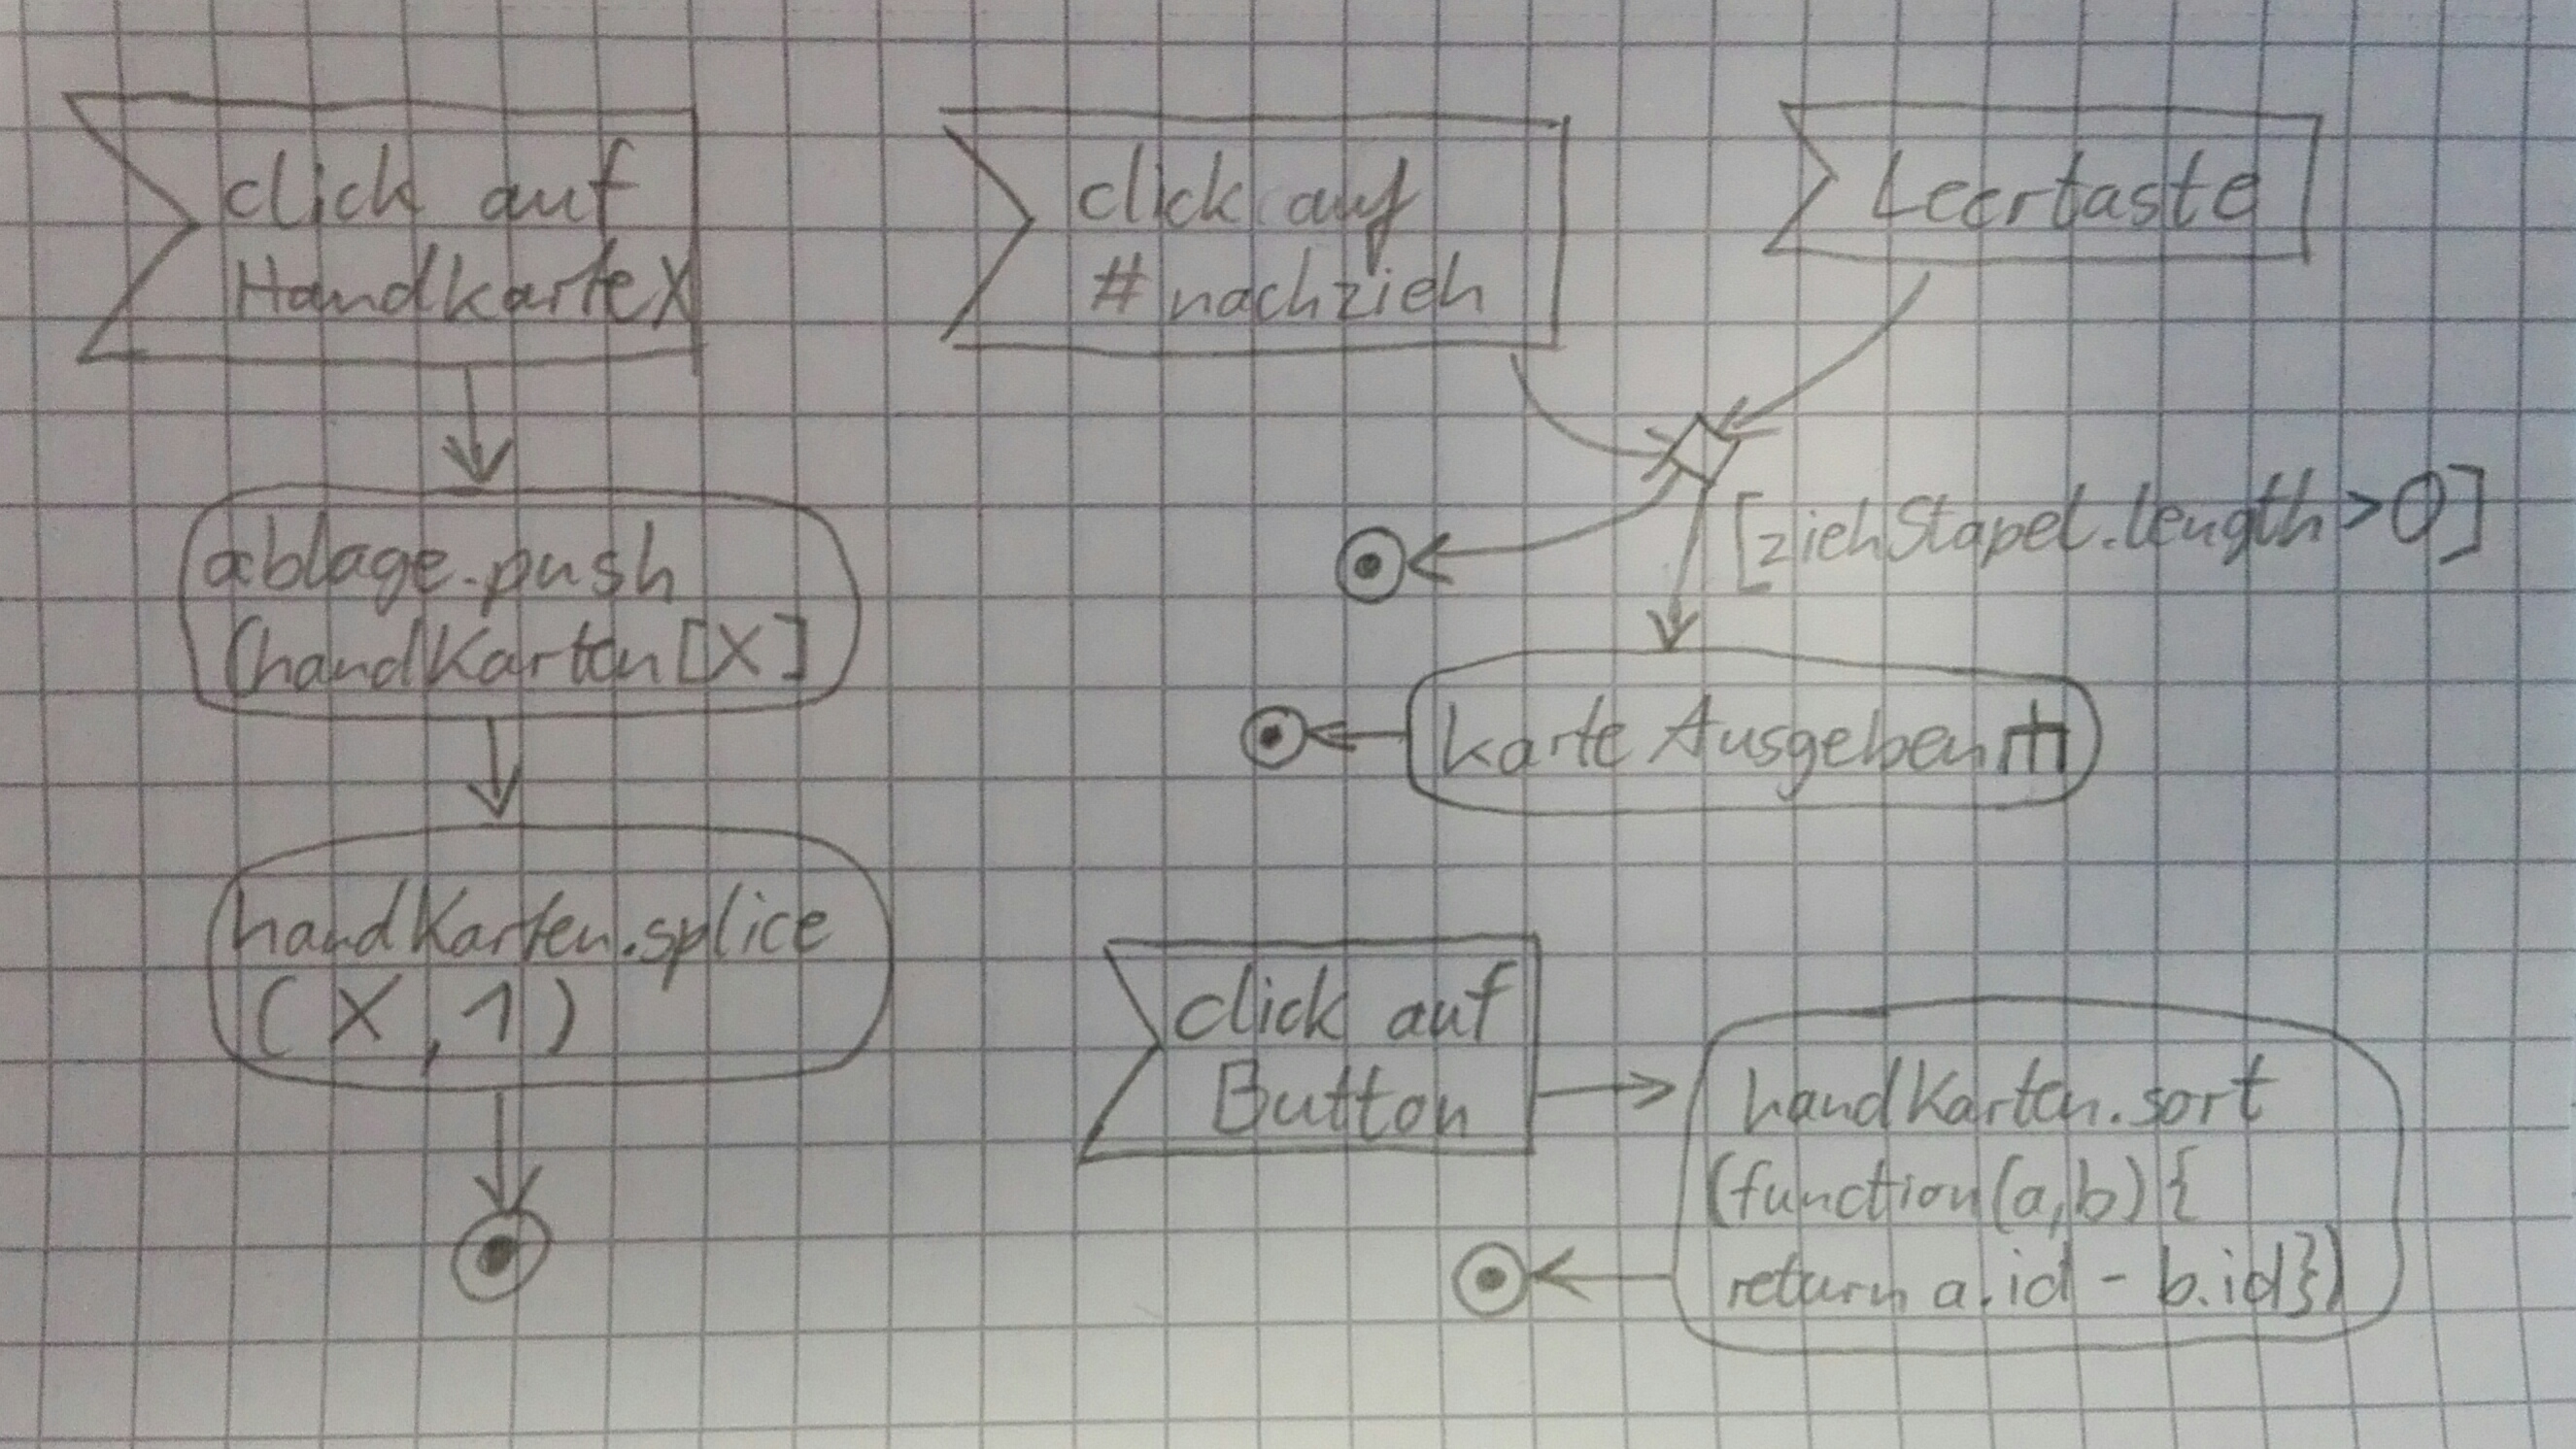 click auf
HandkarteX
ablage.push
(handKarten[X]
handKarten.splice
(X,1)
click auf
#nachzieh
Leertaste
[ziehStapel.length>0]
karteAusgeben
click auf
Button
handKarten.sort
(function(a,b){
return a.id - b.id})